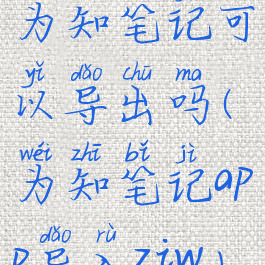 为知笔记可
yǐ dǎo chū ma
以导出吗(
wéi zhī bǐ jì
为知笔记ap
dǎo rù
p导入ziw)